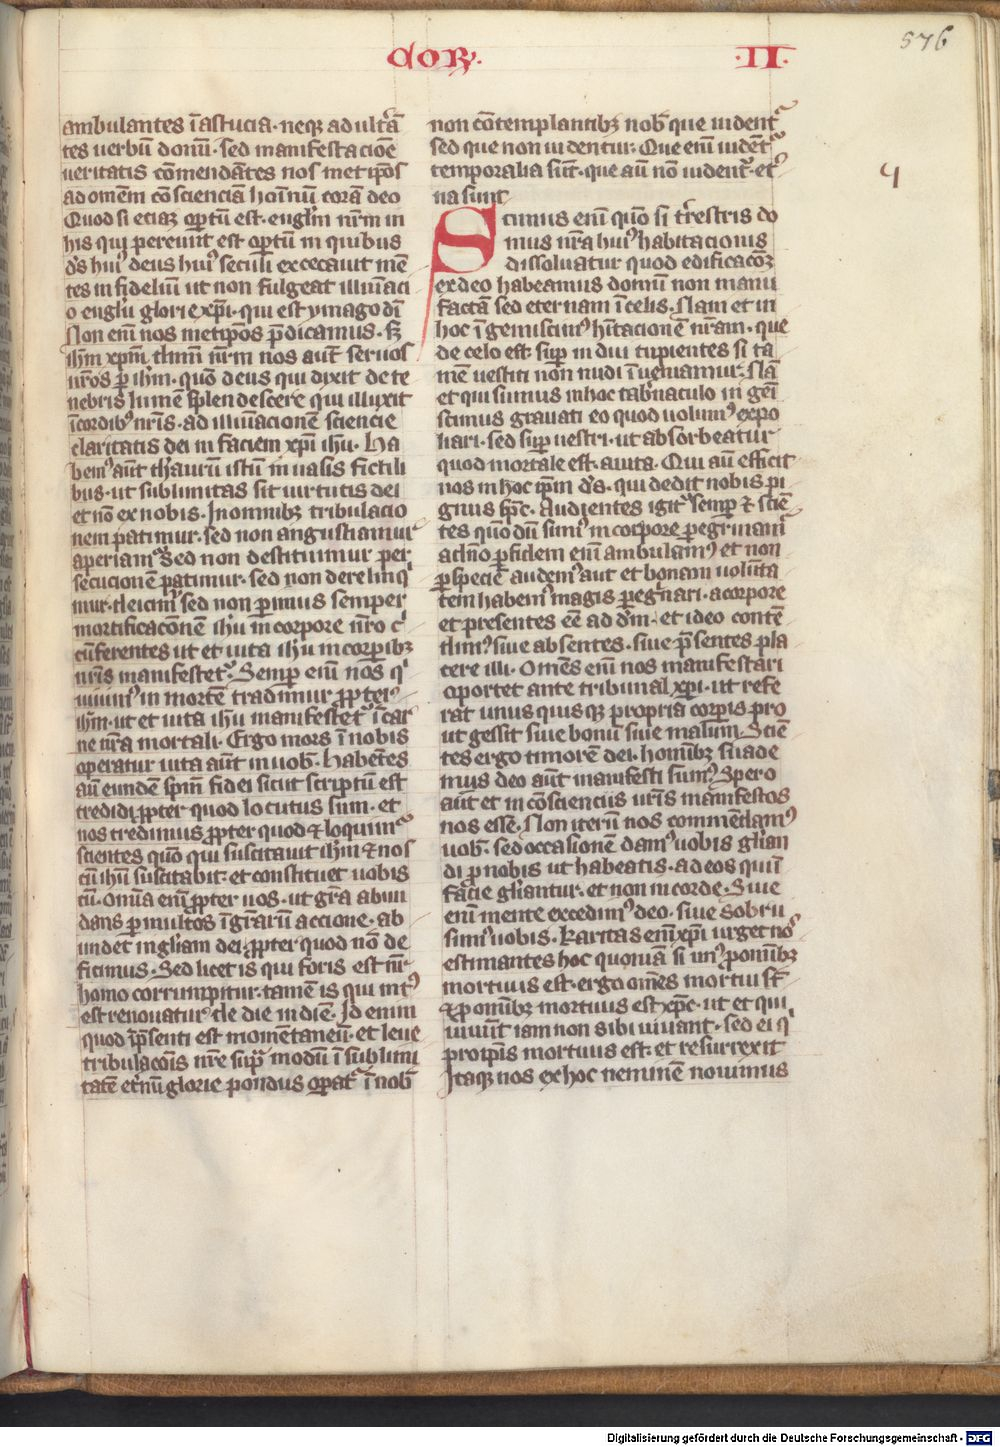 Cor.
.II.
576
ambulantes ī astucia· neqꝫ adult̾ā
tes uerbū domī· sed manifestacioē
ueritatis cōmendātes nos met ip̄os
ad omēm cōsciencia hoīnū corā deo
Quod si eciaꝫ op̄tū est· eugl̄m nr̄m in
his qui pereunt est op̄tū in quibus
d̄s huiꝰ deus huiꝰ seculi excecauit mē
tes infideliū ut non fulgeat illuīaci
o euglii glorie xp̄i· qui est ymago dī
Non enī nos metip̄os p̄dicamus· sꝫ
ih̄m xp̄m dn̄m nr̄m nos aut̄ seruos
ur̄os ꝑ ih̄m· quō deus qui dixit de te
nebris lumē splendescere qui illuxit
ī cordibꝰ nr̄is· ad illuīacionē sciencie
claritatis dei in faciem xp̄i ih̄u· Ha
bemꝰ aūt thaurū istū in uasis fictili
bus· ut sublimitas sit uirtutis dei
et nō ex nobis· In omnibꝫ tribulacio
nem patimur· sed non angustiamur
aperiamᷣ Sed non destituimur per
secucionē patimur· sed non derelinqi
mur· deicimᷣ sed non ꝑimus semper
mortificacōnē ih̄u in corpore nr̄o ci
cūferentes ut et uita ih̄u in corꝑibꝫ
nr̄is manifestetᷣ· Semꝑ enī nōs qi
uiuimꝰ in mortē tradimur ꝓpter
ih̄m· ut et uita ih̄u manifestetᷣ ī car
ne nr̄a mortali· Ergo mors ī nobis
operatur uita aūt in uob̄· habētes
aū eundē spm̄ fidei sicut scriptū est
credidi ꝓpter quod locutus sum· et
nos credimus ꝓpter quod ⁊ loquimᷣ
scientes quō qui suscitauit ih̄m ⁊ nos
cū ih̄u suscitabit· et constituet uobis
cū· omīa enī ꝓpter uos· ut gr̄a abun
dans ꝑ multos ī gr̄arū accione· ab
undet in gl̄iam dei ꝓpter quod nō de
ficimus· Sed licet is qui foris est nr̄
homo corrumpitur· tamē is qui intꝰ
est renouaturᷣ de die in diē· Id enim
quod ī p̄senti est momētaneū· et leue
tribulacōis nr̄e supᷓ modū ī sublimi
tatē et̾nū glorie pondus opat̄ ī nob̄
non cōtemplantibꝫ nob̄ que uident̄ᷣ
sed que non uidentur· Que enī uidēt
temporalia sūt· que aū nō uident̄· et̾
na sunt
Scimus enī quō si tr̄estris do
mus nr̄a huiꝰ habitacionis
dissoluatur quod edificacōꝫ
ex deo habeamus domū non manu
factā sed eternam ī celis· Nam et in
hoc ī gemiscimꝰ hītacionē nr̄am· que
de celo est· suꝑ indui cupientes si ta
mē uestiti non nudi ī ueniamur· Nā
et qui sumus in hoc tab̾naculo in gemi
scimus grauati eo quod uolumꝰ expo
liari· sed suꝑ uestiri· ut absorbeatur
quod mortale est· a uita· Qui aū efficit
nos in hoc ip̄m d̄s· qui dedit nobis pi
gnus sp̄c· Audentes igit̾ semꝑ ⁊ sciē
tes quō dū sumꝰ in corpore peregrinamᷣ
a dn̄o ꝑ fidem enī ambulamꝰ et non
ꝑ speciē audemꝰ aut et bonam uolūta
tem habemꝰ magis ꝑegr̄nari· a corpore
et presentes eē ad dn̄m· et ideo contē
dimꝰ siue absentes· siue p̄sentes pla
cere illi· Omēs enī nos manifestari
oportet ante tribunal xp̄i· ut refe
rat unus quisqꝫ propria corꝑis pro
ut gessit siue bonū siue malum· Sciē
tes ergo timorē dei· homībꝫ suade
mus deo aūt manifesti sumꝰ Spero
aūt et in cōscienciis ur̄is manifestos
nos esse· Non iterū nos commēdamꝰ
uob̄· sed occasionē damꝰ uobis gl̄ian
di ꝓ nobis ut habeatis· ad eos qui ī
facie gl̄iantur· et non in corde· Siue
enī mente excedimꝰ deo· siue sobrii
simꝰ uobis· Karitas enī xp̄i urget nos
estimantes hoc quoniā si unꝰ ꝓ omībꝫ
mortuus est· ergo omēs mortui st̄
⁊ ꝓ omībꝫ mortuus est xp̄c· ut et qui
uiuūt iam non sibi uiuant· sed ei qi
pro ip̄is mortuus est· et resurrexit
Itaqꝫ nos ex hoc neminē nouimus
4
Digitalisierung gefördert durch die Deutsche Forschungsgemeinschaft - DFG